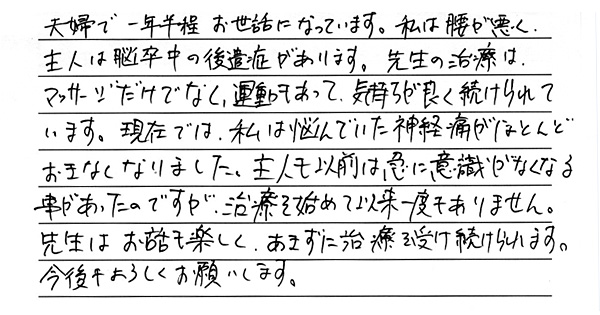 夫婦で一年半程お世話になっています。私は腰が悪く、
主人は脳卒中の後遺症があります。先生の治療は、
マッサージだけでなく、運動もあって、気持ちが良く続けられて
います。現在では、私は悩んでいた神経痛がほとんど
おきなくなりました。主人も以前は急に意識がなくなる
事があったのですが、治療を始めて以来一度もありません。
先生はお話も楽しく、あきずに治療を受け続けられます。
今後もよろしくお願いします。